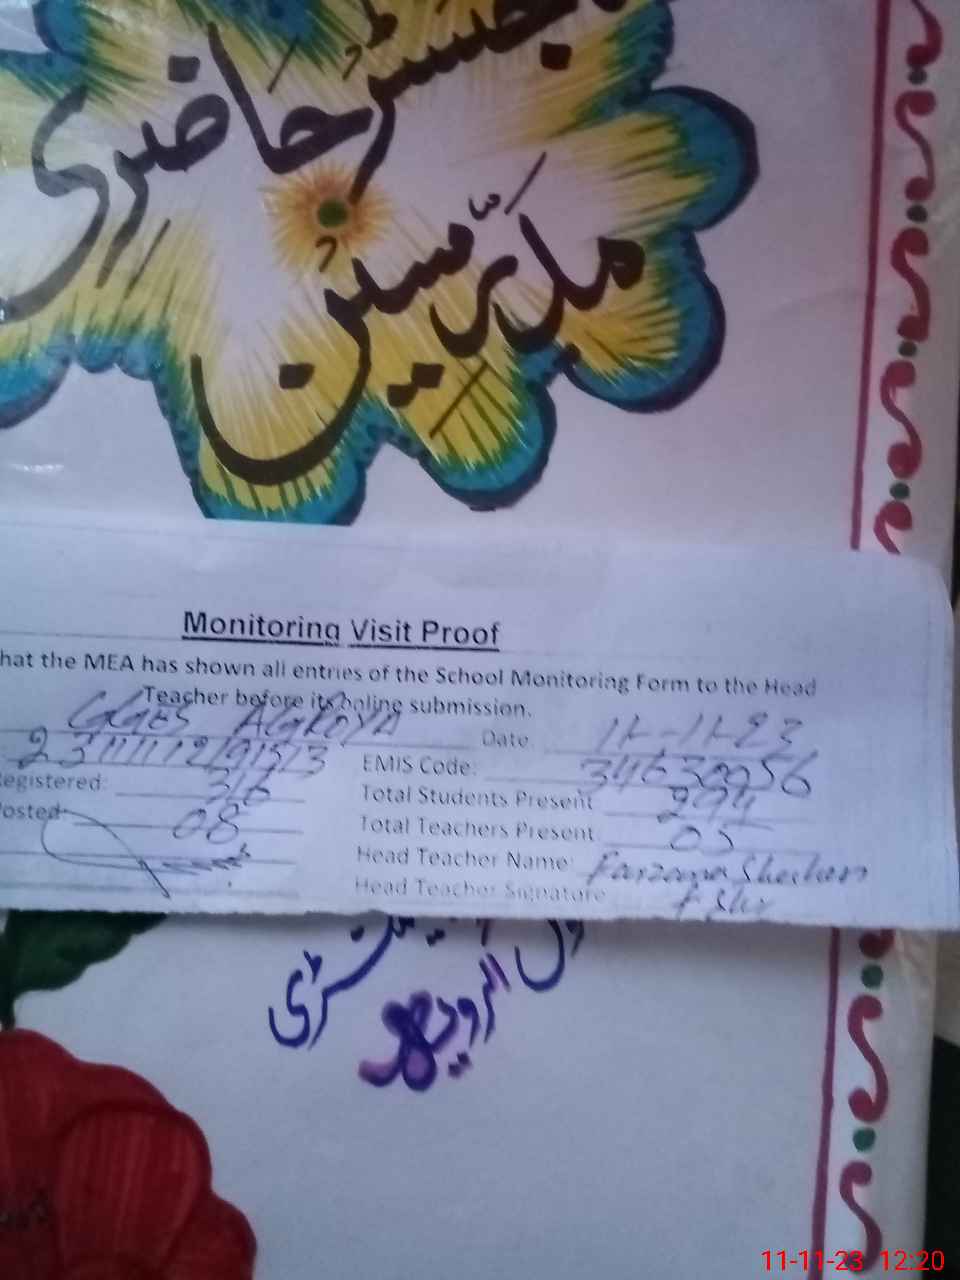 رجسٹر حاضری
مدرسین
Monitoring Visit Proof
hat the MEA has shown all entries of the School Monitoring Form to the Head
Teacher before its online submission.
GGES Date: 11-11-23
EMIS Code: 34630056
Registered: 316 Total Students Present 294
Posted: 08 Total Teachers Present: 05
Head Teacher Name: Farzana Shaheen
Head Teacher Signature
11-11-23 12:20